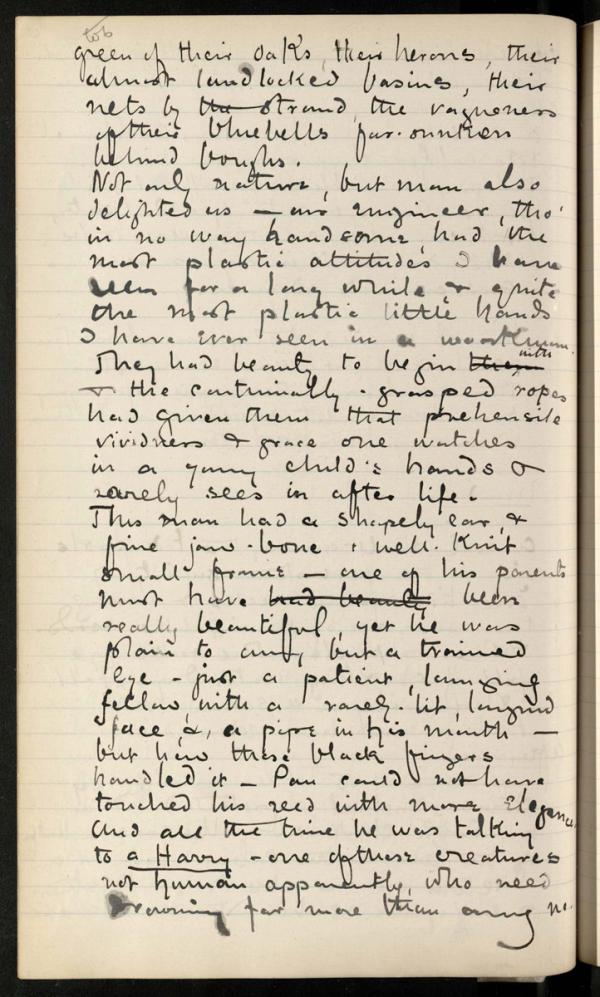 green of their oaks, their herons, their
almost landlocked basins, their
nets by the strand, the vagueness
of their bluebells far-sunken
behind boughs.
Not only nature, but man also
delighted us — our engineer, tho'
in no way handsome, had the
most plastic attitudes I have
seen for a long while & quite
the most plastic little hands
I have ever seen in a workman.
They had beauty to begin them with
& the continually-grasped ropes
had given them that prehensile
vividness & grace one watches
in a young child's hands &
rarely sees in after life.
This man had a shapely ear, &
fine jaw-bone & well-knit
small frame — one of his parents
must have had beauty been
really beautiful, yet he was
plain to any, but a trained
eye - just a patient, lounging
fellow with a rarely-lit, languid
face &, a pipe in his mouth —
but how those black fingers
handled it — Pan could not have
touched his reed with more elegance,
And all the time he was talking
to a Harry - one of those creatures
not human apparently, who need
drowning far more than any